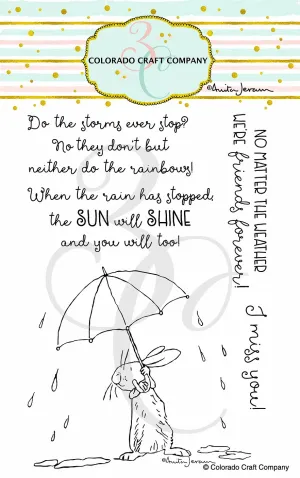 COLORADO CRAFT COMPANY
©Anita Jeram
Do the storms ever stop?
No they don't but
neither do the rainbows!
When the rain has stopped,
the SUN will SHINE
and you will too!
NO MATTER THE WEATHER
WE'RE friends forever!
I miss you!
©Anita Jeram
© Colorado Craft Company